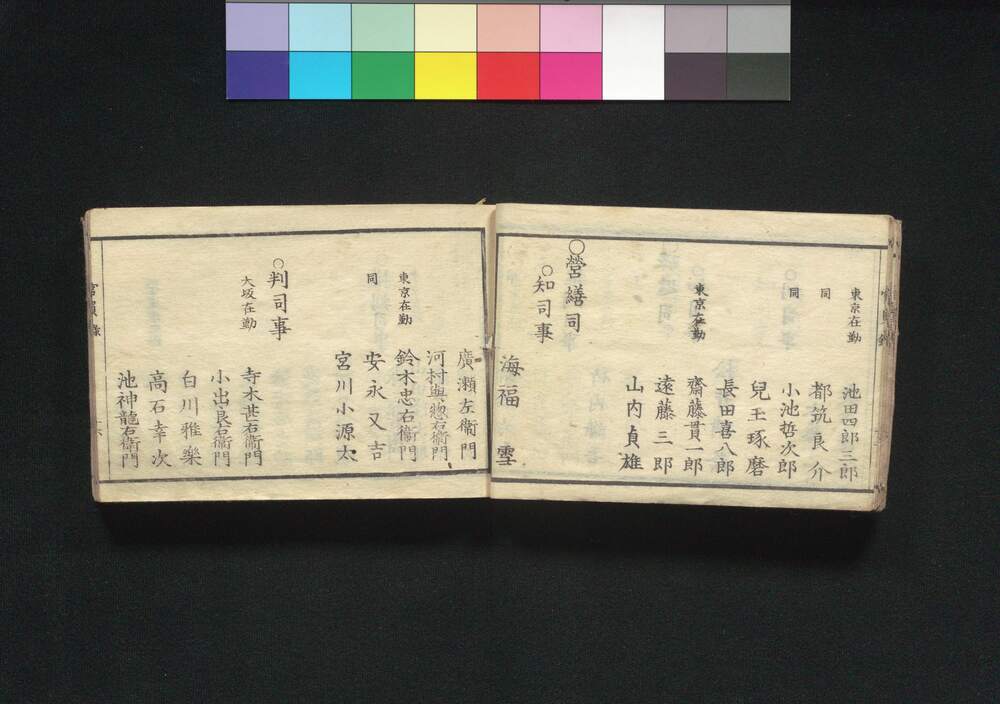 東京在勤 池田四郎三郎
同 都筑良介
同 小池哲次郎
兒玉琢磨
長田喜八郎
東京在勤 齋藤貫一郎
遠藤三郎
山内貞雄
○營繕司
○知司事
海福雪
廣瀬左衞門
河村與惣右衞門
東京在勤 鈴木忠右衞門
同 安永又吉
宮川小源太
○判司事
大坂在勤 寺木甚右衞門
小出良右衞門
白川雅樂
高石幸次
池神龍右衞門
官員錄